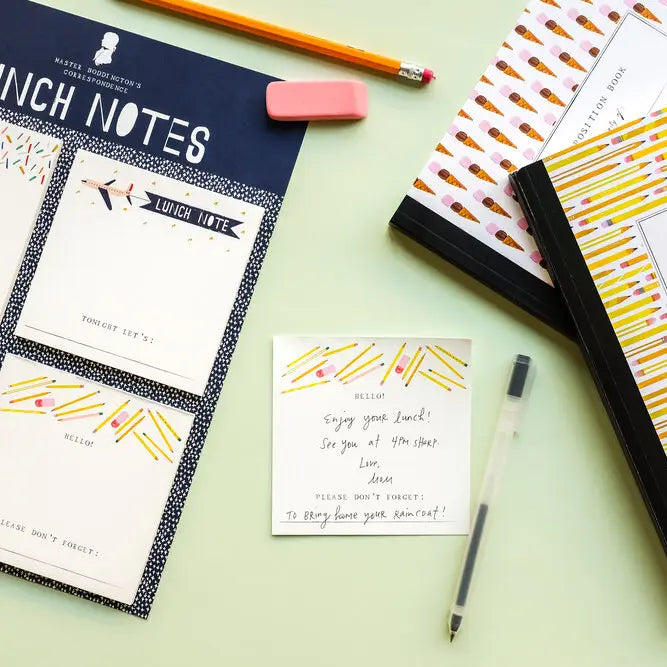 MASTER BODDINGTON'S
CORRESPONDENCE
UNCH NOTES
LUNCH NOTE
TONIGHT LET'S:
HELLO!
LEASE DON'T FORGET:
HELLO!
Enjoy your lunch!
See you at 4PM SHARP.
Love,
Mom
PLEASE DON'T FORGET:
TO BRING home your RAINCOAT!
POSITION BOOK